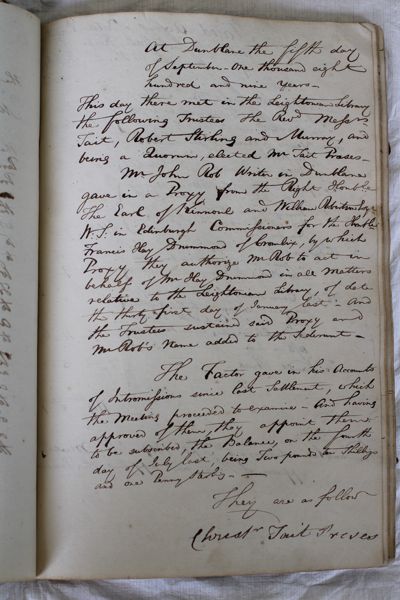 At Dunblane the fifth day
of September One thousand eight
hundred and nine years—
This day there met in the Leightonean Library
the following Trustees The Revd Messrs
Tait, Robert Stirling and Murray, and
being a Quorum, elected Mr Tait Preses—
Mr John Rob Writer in Dunblane
gave in a Proxy from the Right Honble
The Earl of Kinnoul and William
W.S. in Edinburgh Commissioners for the Honble
Francis Hay Drummond of Cromlix, by which
Proxy they authorize Mr Rob to act in
behalf of Mr Hay Drummond in all Matters
relative to the Leightonean Library, of date
the thirty first day of January last - And
the Trustees sustained said Proxy and
Mr Rob's Name added to the Sederunt—
The Factor gave in his Accounts
of Intromissions since last Settlement, which
the Meeting proceeded to examine - And having
approved of them, they appoint them
to be subscribed, the Balance, on the fourth
day of July last, being Two pounds Shillings
and one Penny Sterlg—
They are as follow
Christr Tait Preses